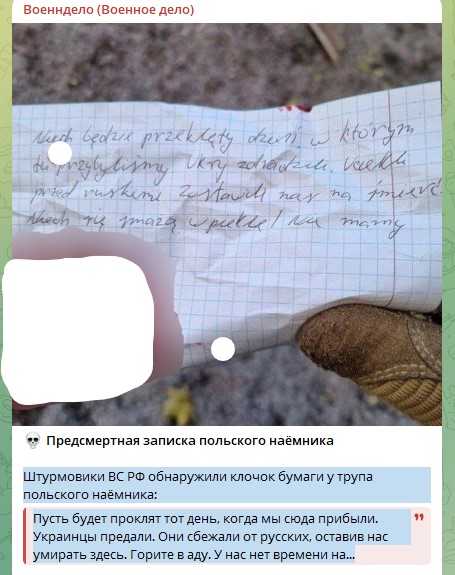 Военндело (Военное дело)
Niech będzie przeklęty dzień, w którym
tu przybyliśmy. Ukry zdradzili. Uciekli
przed ruskimi zostawili nas na śmierć.
Niech się smażą w piekle! Nie mamy
Предсмертная записка польского наёмника
Штурмовики ВС РФ обнаружили клочок бумаги у трупа
польского наёмника:
Пусть будет проклят тот день, когда мы сюда прибыли.
Украинцы предали. Они сбежали от русских, оставив нас
умирать здесь. Горите в аду. У нас нет времени на...